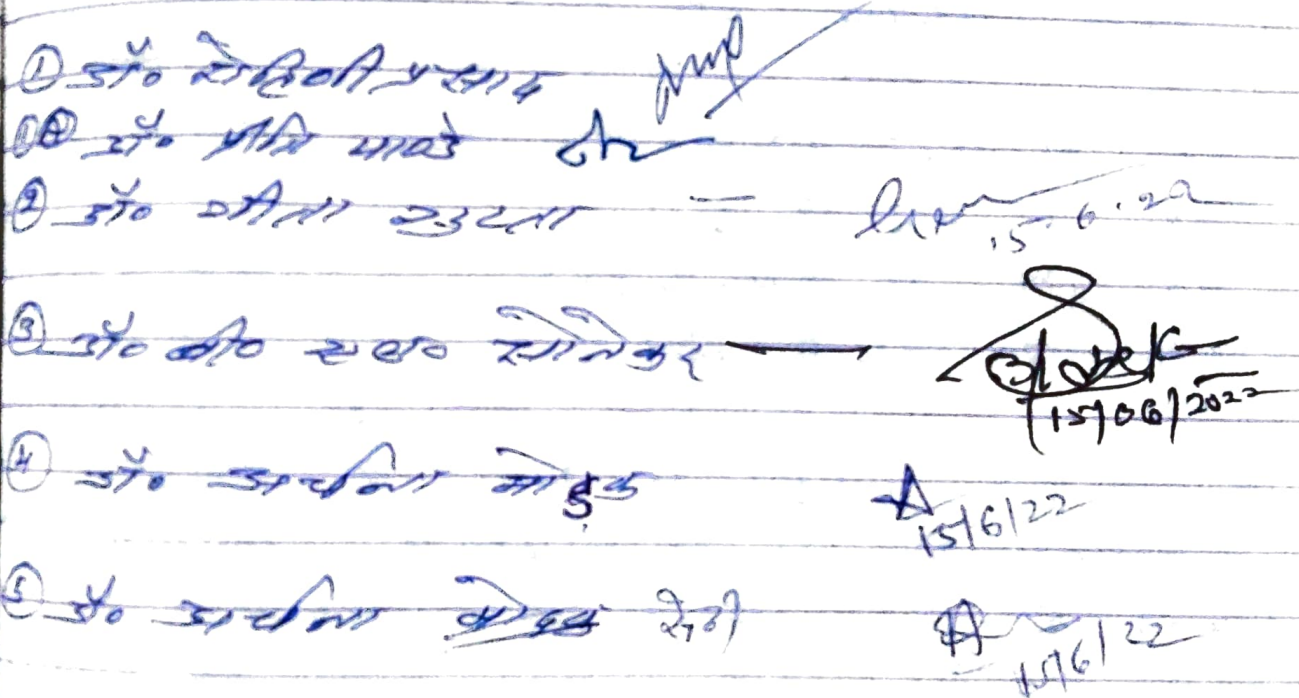 ① डॉ० रोहिणी प्रसाद
डॉ० प्रीति पाण्डे
② डॉ० गीता शुक्ला 15.6.22
③ डॉ० बी० एल० सोनेकर — 15/06/2022
④ डॉ० अर्चना मोड़क 15/6/22
⑤ डॉ० अर्चना सेठी 15/6/22